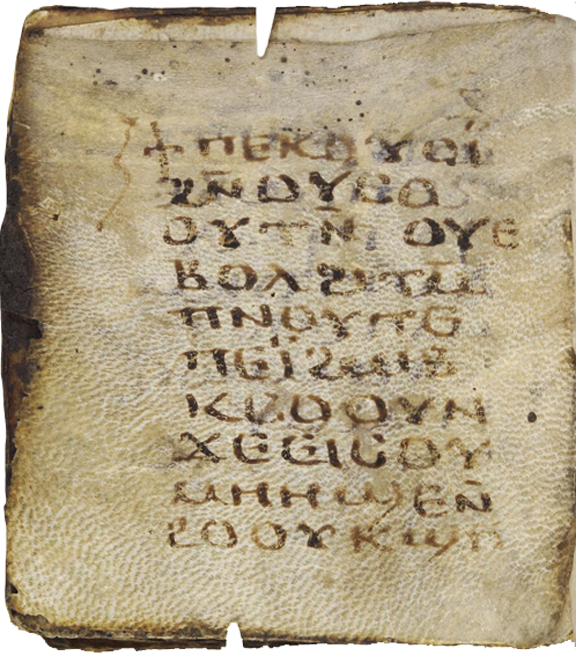 ϯⲡⲉⲕⲟⲩⲟⲓ̈
ϩⲛ̄ⲟⲩⲥⲟ
ⲟⲩⲧⲛ̄ ⲟⲩⲉ
ⲃⲟⲗϩⲓⲧⲙ̄
ⲡⲛⲟⲩⲧⲉ
ⲡⲉⲓ̈ϩⲱⲃ
ⲕⲥⲟⲟⲩⲛ
ϫⲉⲉⲓⲥⲟⲩ
ⲙⲏⲏϣⲉⲛ̄
ϩⲟⲟⲩⲕϣⲡ